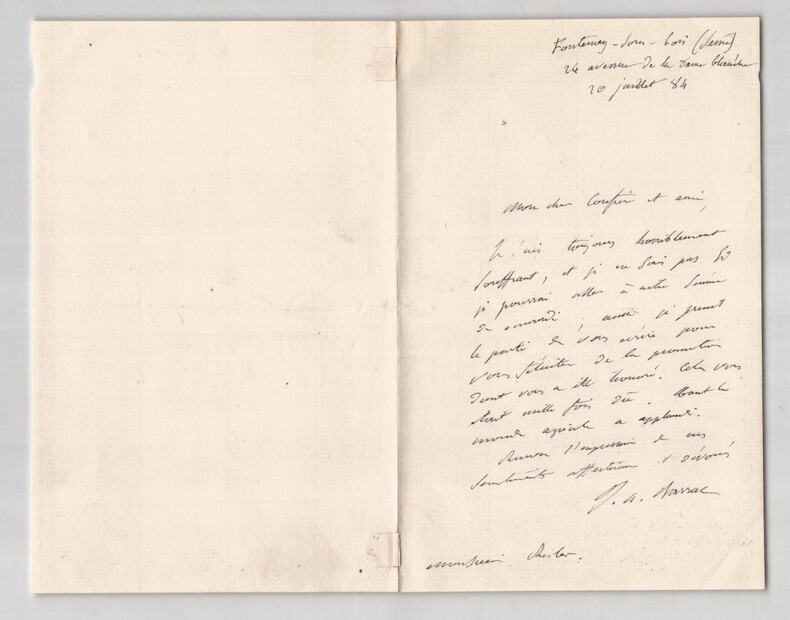 Fontenay-sous-bois (Seine)
24 avenue de la Dame blanche
20 juillet 84
Mon cher Confrère et ami,
Je suis toujours horriblement
souffrant, et je ne sais pas si
je pourrai aller à notre séance
de mercredi; aussi je prends
le parti de vous écrire pour
vous féliciter de la promotion
dont vous a été honoré. Cela vous
était mille fois dû. Tout le
monde agricole a applaudi.
Recevez l'expression de mes
sentiments affectueux et dévoués
J. A. Barral
Monsieur Risler.